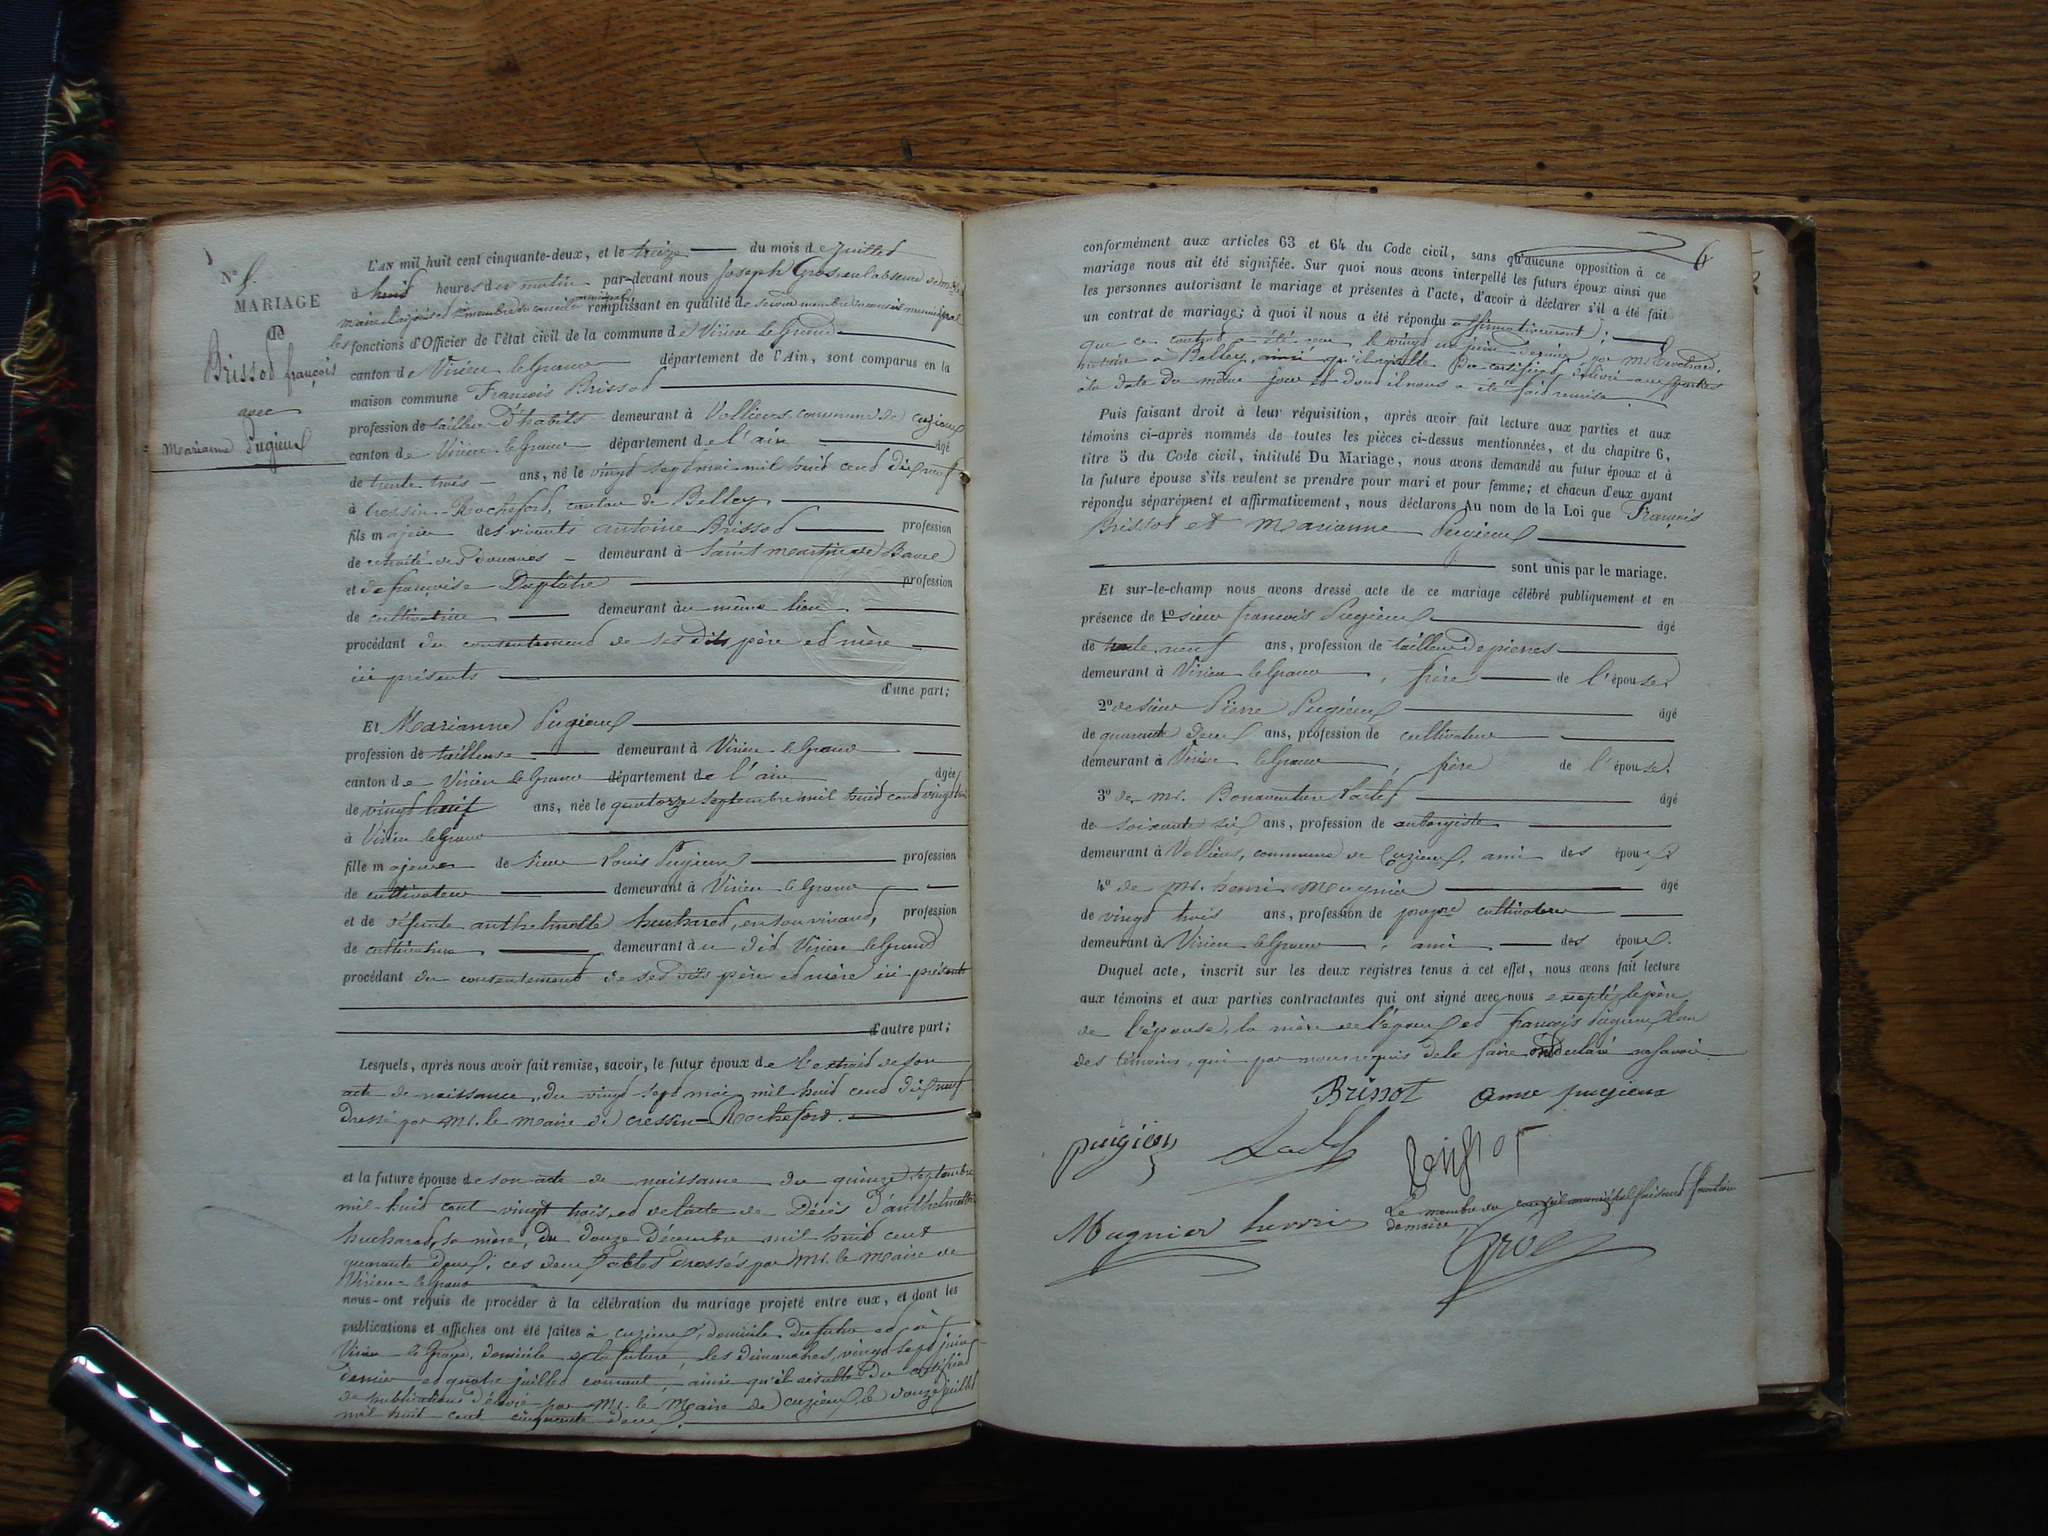 N° 8.
MARIAGE
de
Brissot françois
avec
Marianne Pugieux
L'AN mil huit cent cinquante-deux, et le treize du mois de Juillet
à huit heures du matin par-devant nous Joseph Gros, en l'absence de
maire remplissant en qualité de second membre du conseil municipal
les fonctions d'Officier de l'état civil de la commune de Virieu le Grand
canton de Virieu le Grand département de l'Ain, sont comparus en la
maison commune François Brissot
profession de tailleur d'habits demeurant à Vollien commune de Cuzieux
canton de Virieu-le Grand département de l'ain âgé
de trente trois ans, né le vingt sept mai mil huit cent dix neuf
à Cressin-Rochefort, canton de Belley
fils majeur des vivants antoine Brissot profession
de retraité des douanes demeurant à Saint martin de Bavel
et de françoise Duplatre profession
de cultivatrice demeurant au même lieu
procédant du consentement de ses dits père et mère
ici présents
d'une part;
Et Marianne Pugieux
profession de tailleuse demeurant à Virieu-le Grand
canton de Virieu le Grand département de l'ain âgée
de vingt huit ans, née le quatorze septembre mil huit cent vingt trois
à Virieu le Grand
fille majeure de sieur Louis Pugieux profession
de cultivateur demeurant à Virieu-le Grand
et de défunte anthelmette huchard, en son vivant, profession
de cultivatrice demeurant au dit Virieu le Grand
procédant du consentement de ses dits père et mère ici présents
d'autre part;
Lesquels, après nous avoir fait remise, savoir, le futur époux de l'extrait de son
acte de naissance, du vingt sept mai mil huit cent dix neuf
dressé par Mr. le maire de cressin-Rochefort.
et la future épouse de son acte de naissance du quinze septembre
mil-huit cent vingt trois et de l'acte de décès d'anthelmette
huchard, sa mère, du douze Décembre mil huit cent
quarante deux; ces deux actes dressés par Mr. le Maire de
Virieu-le Grand
nous-ont requis de procéder à la célébration du mariage projeté entre eux, et dont les
publications et affiches ont été faites à cuzieux, domicile du futur et à
Virieu le Grand, domicile de la future, les dimanches, vingt sept juin
dernier et quatre juillet courant, ainsi qu'il résulte du certificat
de publications délivré par Mr. le Maire de Cuzieux, le douze juillet
mil huit cent cinquante deux.
6
conformément aux articles 63 et 64 du Code civil, sans qu'aucune opposition à ce
mariage nous ait été signifiée. Sur quoi nous avons interpellé les futurs époux ainsi que
les personnes autorisant le mariage et présentes à l'acte, d'avoir à déclarer s'il a été fait
un contrat de mariage; à quoi il nous a été répondu affirmativement;
que ce contrat a été reçu le vingt un juin dernier, par Mr.
notaire à Belley, ainsi qu'il résulte du certificat délivré aux parties
à la date du même jour et dont il nous a été fait remise.
Puis faisant droit à leur réquisition, après avoir fait lecture aux parties et aux
témoins ci-après nommés de toutes les pièces ci-dessus mentionnées, et du chapitre 6,
titre 5 du Code civil, intitulé Du Mariage, nous avons demandé au futur époux et à
la future épouse s'ils veulent se prendre pour mari et pour femme; et chacun d'eux ayant
répondu séparément et affirmativement, nous déclarons Au nom de la Loi que François
Brissot et Marianne Pugieux
sont unis par le mariage.
Et sur-le-champ nous avons dressé acte de ce mariage célébré publiquement et en
présence de 1° sieur françois Pugieux âgé
de trente-neuf ans, profession de tailleur de pierres
demeurant à Virieu le Grand, frère de l'épouse.
2° de sieur Pierre Pugieux âgé
de quarante deux ans, profession de cultivateur
demeurant à Virieu le Grand, frère de l'épouse.
3° de Mr. Bonaventure âgé
de soixante six ans, profession de aubergiste
demeurant à Vollien, commune de Cuzieux, ami des époux.
4° de Mr. henri Mugnier âgé
de vingt trois ans, profession de propre cultivateur
demeurant à Virieu le Grand, ami des époux.
Duquel acte, inscrit sur les deux registres tenus à cet effet, nous avons fait lecture
aux témoins et aux parties contractantes qui ont signé avec nous excepté le père
de l'épouse, la mère de l'époux et françois Pugieux l'un
des témoins, qui par nous requis de le faire ont déclaré ne savoir
Brissot anne pugieux
pugieux
Brissot
Mugnier henri
Le membre du conseil municipal faisant fonction
de maire
Gros